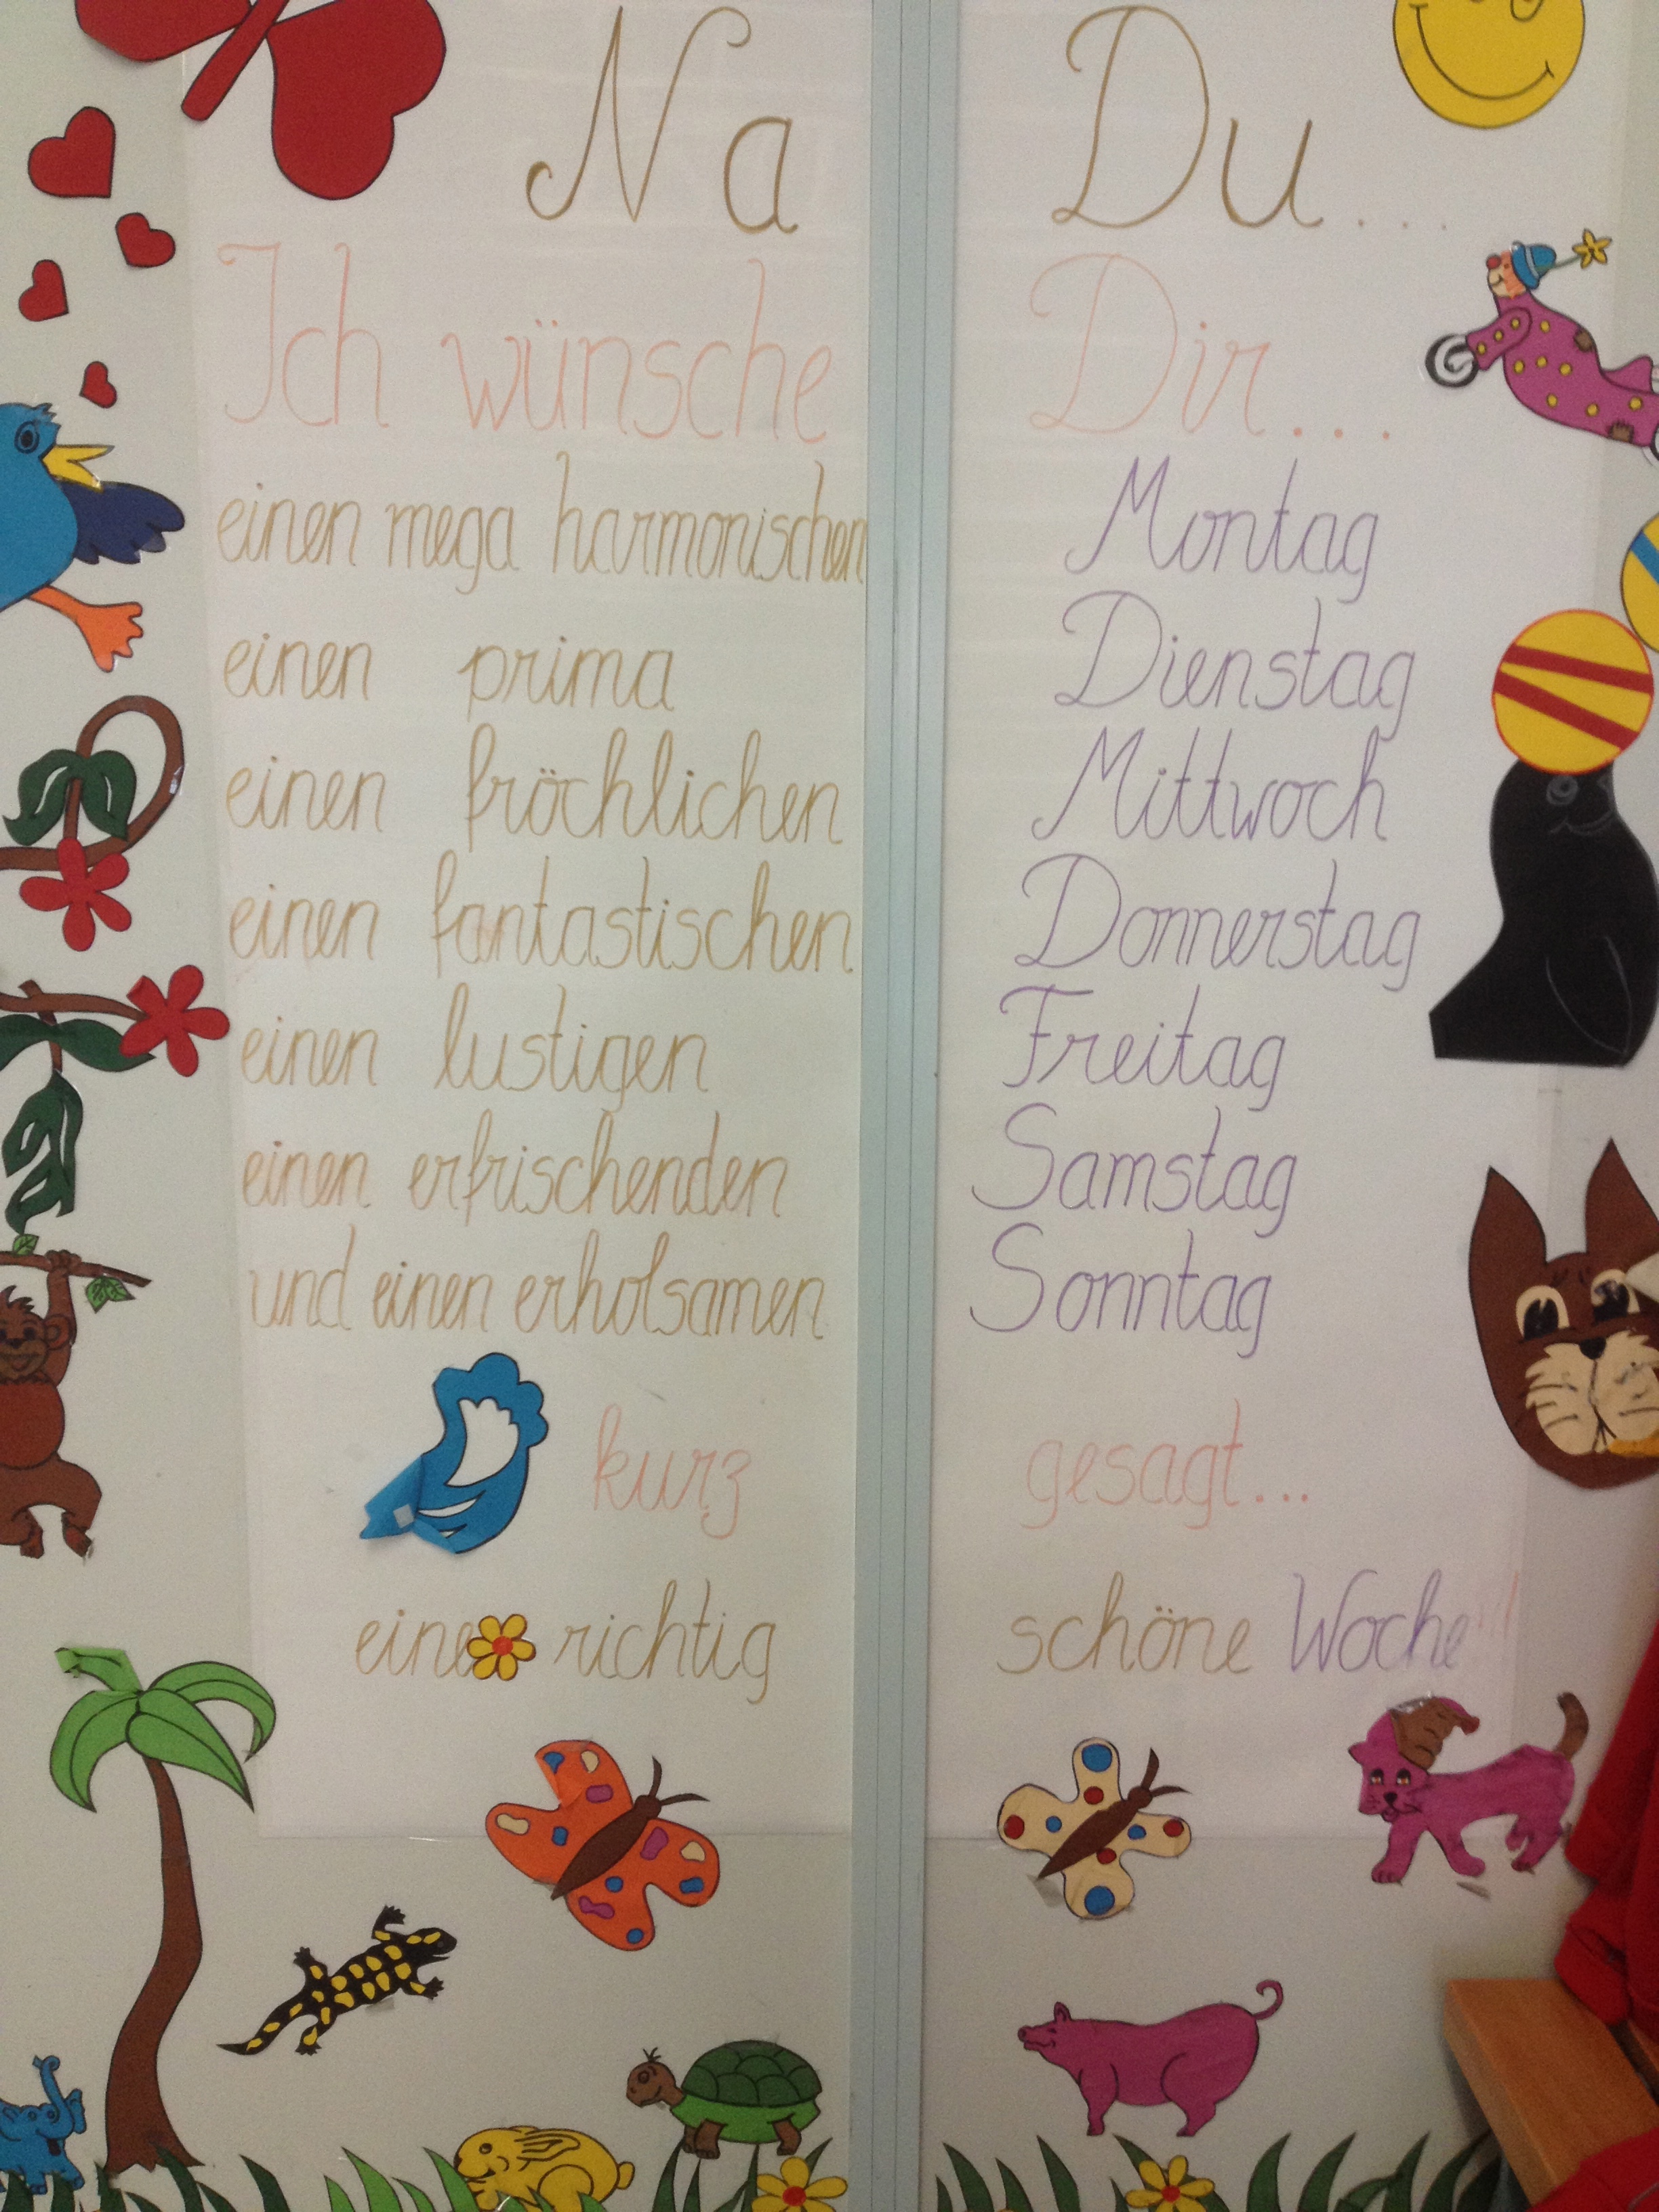 Na Du...
Ich wünsche Dir...
einen mega harmonischen Montag
einen prima Dienstag
einen fröchlichen Mittwoch
einen fantastischen Donnerstag
einen lustigen Freitag
einen erfrischenden Samstag
und einen erholsamen Sonntag
kurz gesagt...
eine richtig schöne Woche!!!